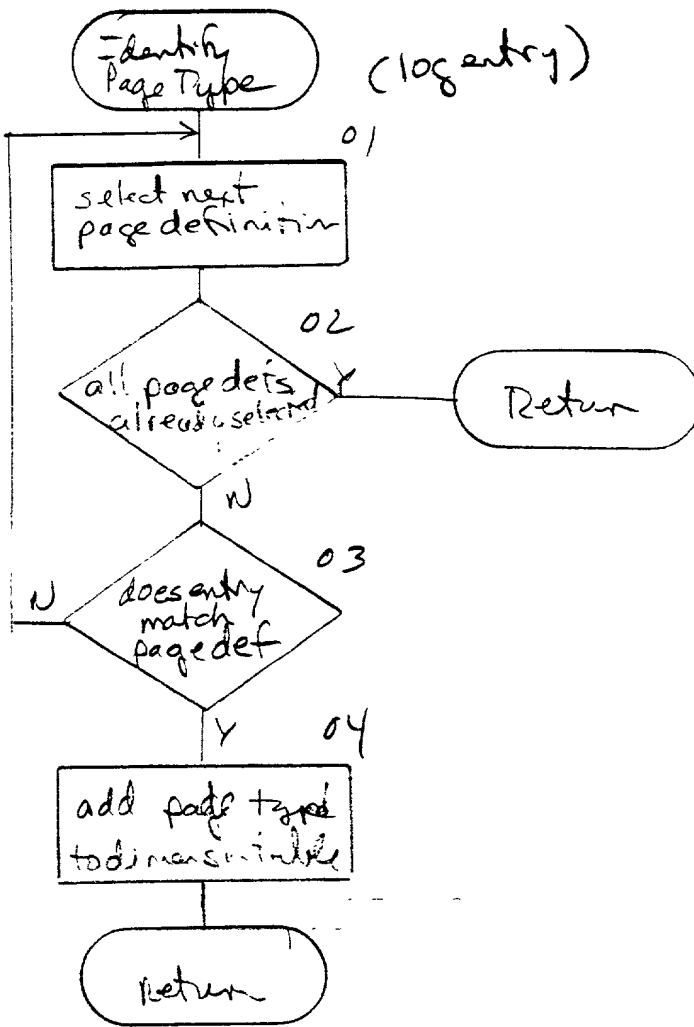 Identify
Page Type
(log entry)
01
select next
page definition
02
all page defs
already selected
Y
Return
N
03
does entry
match
page def
N
Y
04
add page type
to dimension table
Return